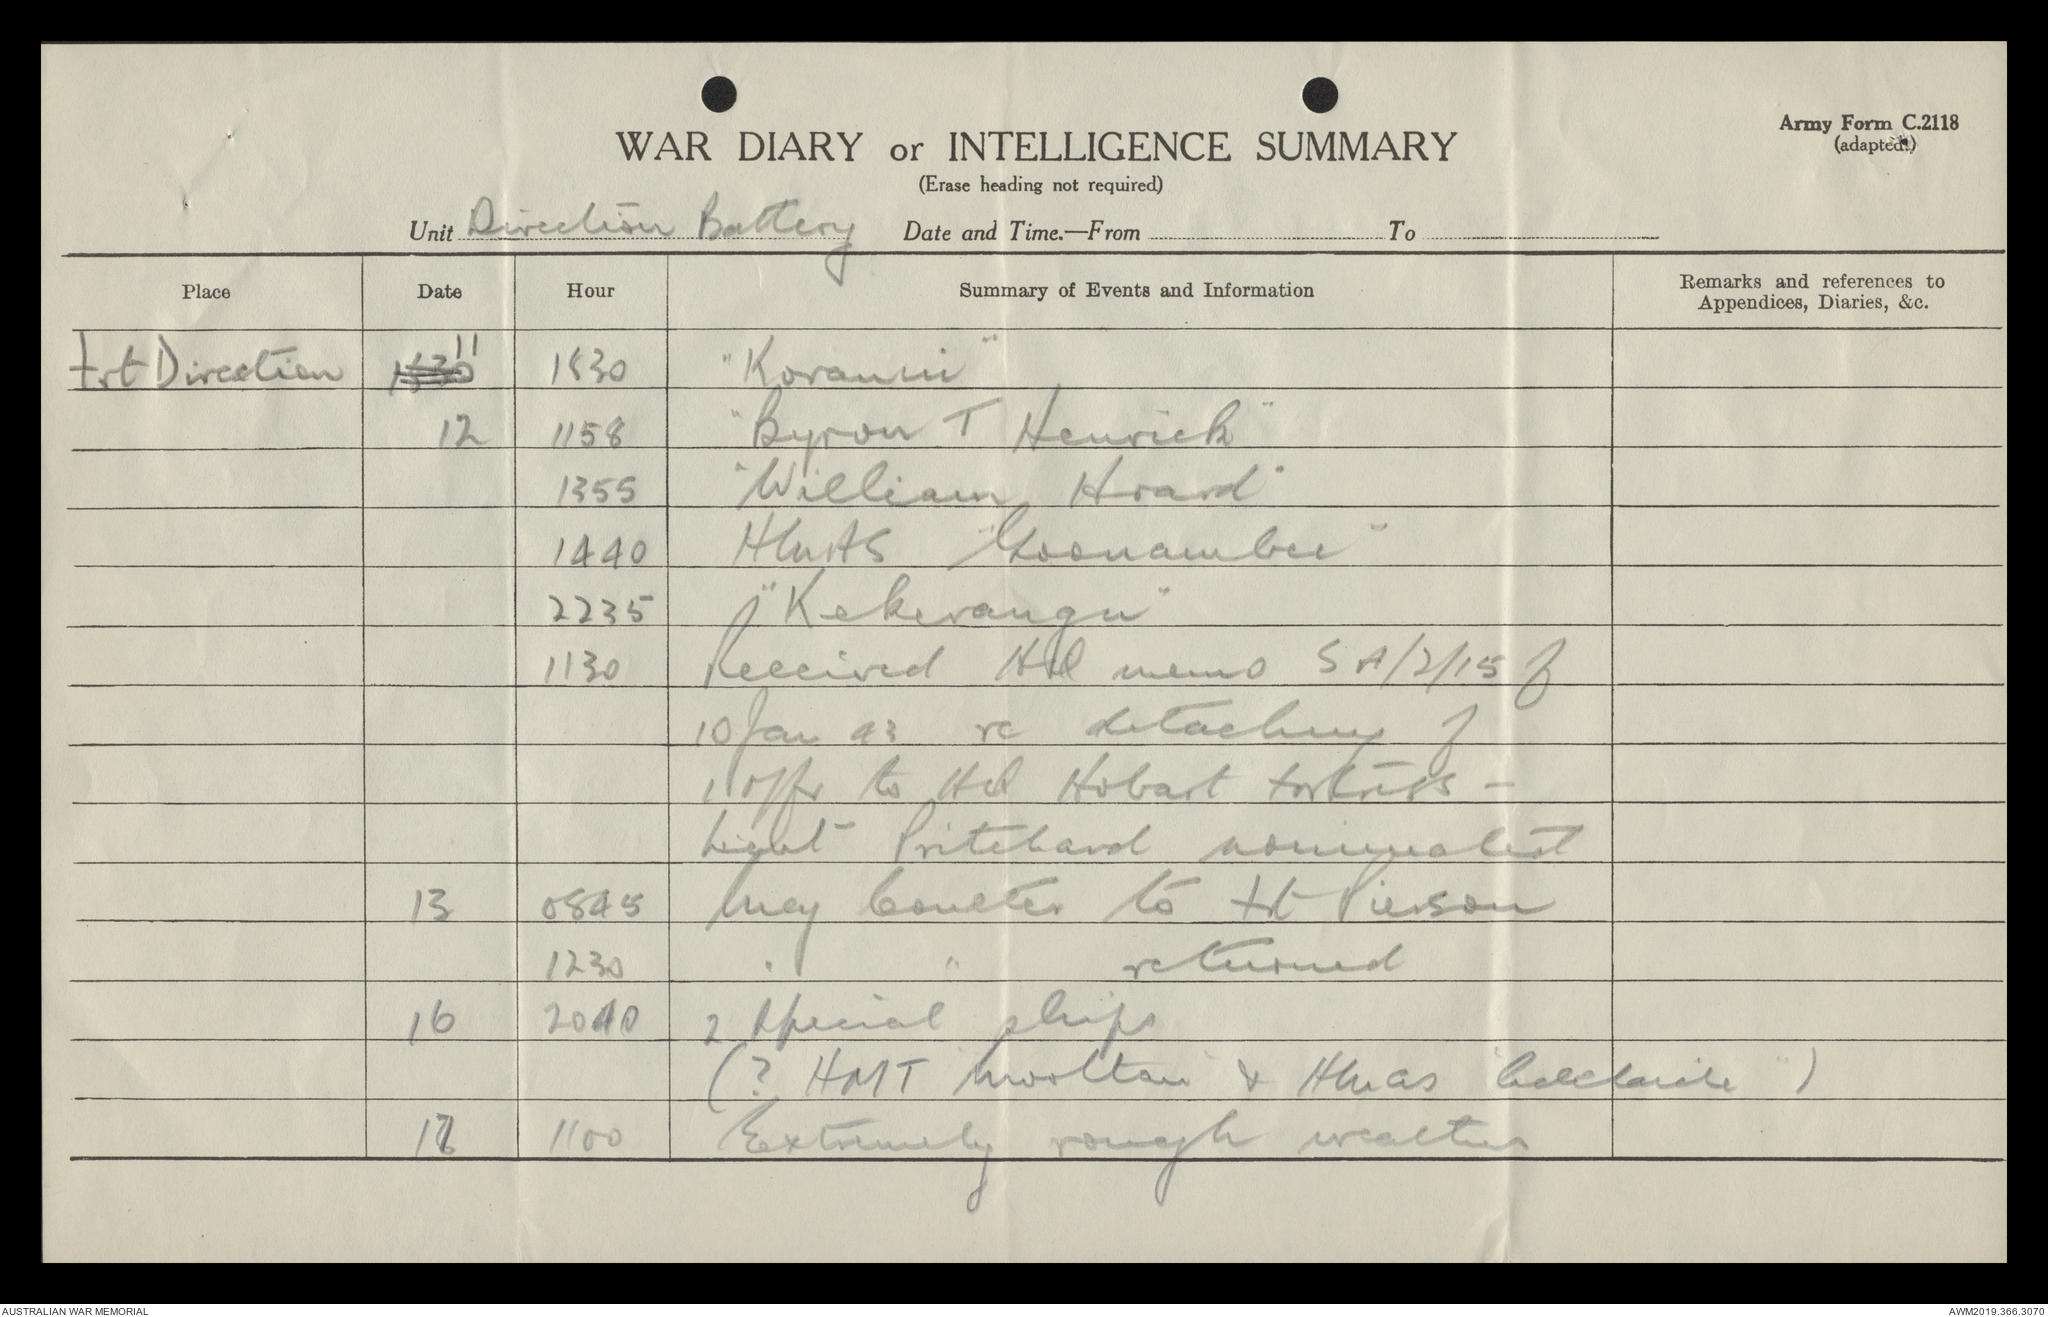 Army Form C.2118
(adapted.)
WAR DIARY or INTELLIGENCE SUMMARY
(Erase heading not required)
Unit Direction Battery Date and Time.—From To
Place Date Hour Summary of Events and Information Remarks and references to Appendices, Diaries, &c.
Frt Direction 1530 11 1530 "Koranui"
12 1158 "Byron T Henrick"
1355 "William Hoard"
1440 HMAS "Goonambee"
2235 "Kekerangu"
1130 Received Hd memo SA/2/15 of
10 Jan 43 re detaching of
1 offr to Hd Hobart Fortress -
Lieut Pritchard nominated
13 0845 Coulter to Frt Pierson
1230 " " returned
16 2040 2 special ships
(? HMT "Mooltan" & HMAS "Adelaide")
17 1100 Extremely rough weather
AUSTRALIAN WAR MEMORIAL
AWM2019.366.3070